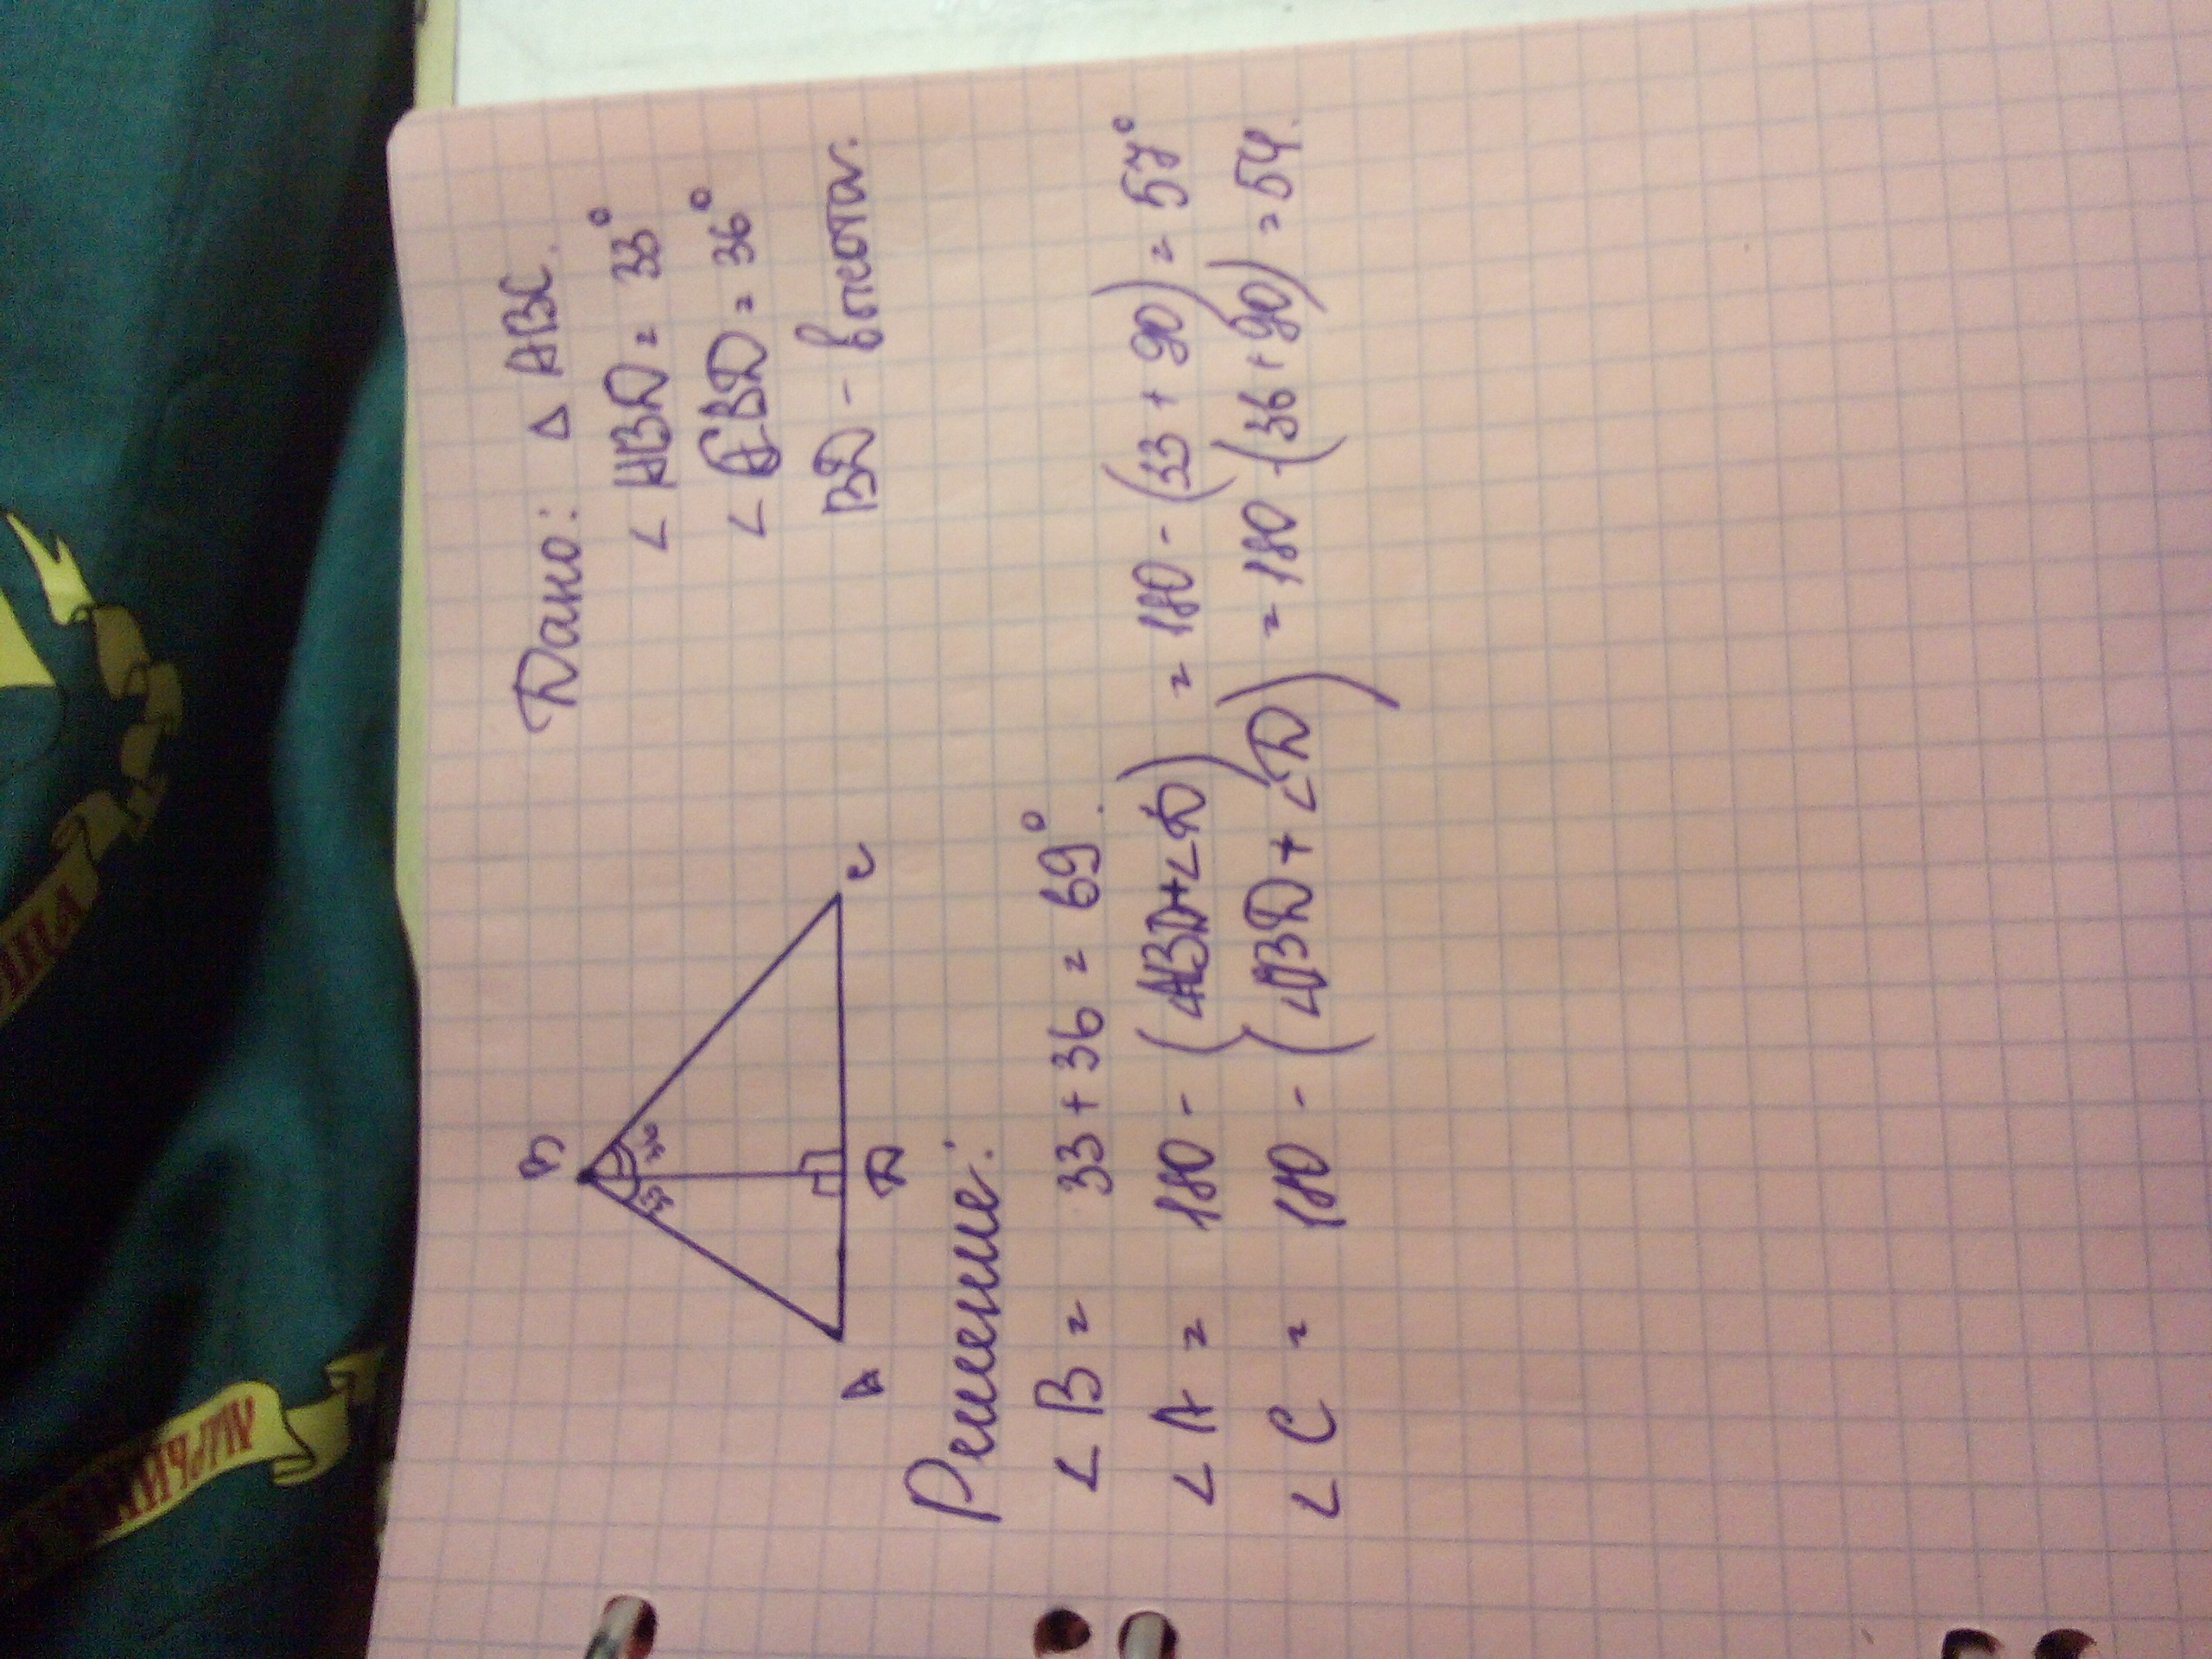 Дано: Δ ABC.
∠ ABD = 33°
∠ CBD = 36°
BD - высота.
B
33
36
A
D
C
Решение:
∠ B = 33 + 36 = 69°.
∠ A = 180 - (∠ABD+∠D) = 180 - (33 + 90) = 57°
∠ C = 180 - (∠CBD + ∠D) = 180 - (36 + 90) = 54.